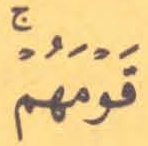 قَوْمَهُمْۚ